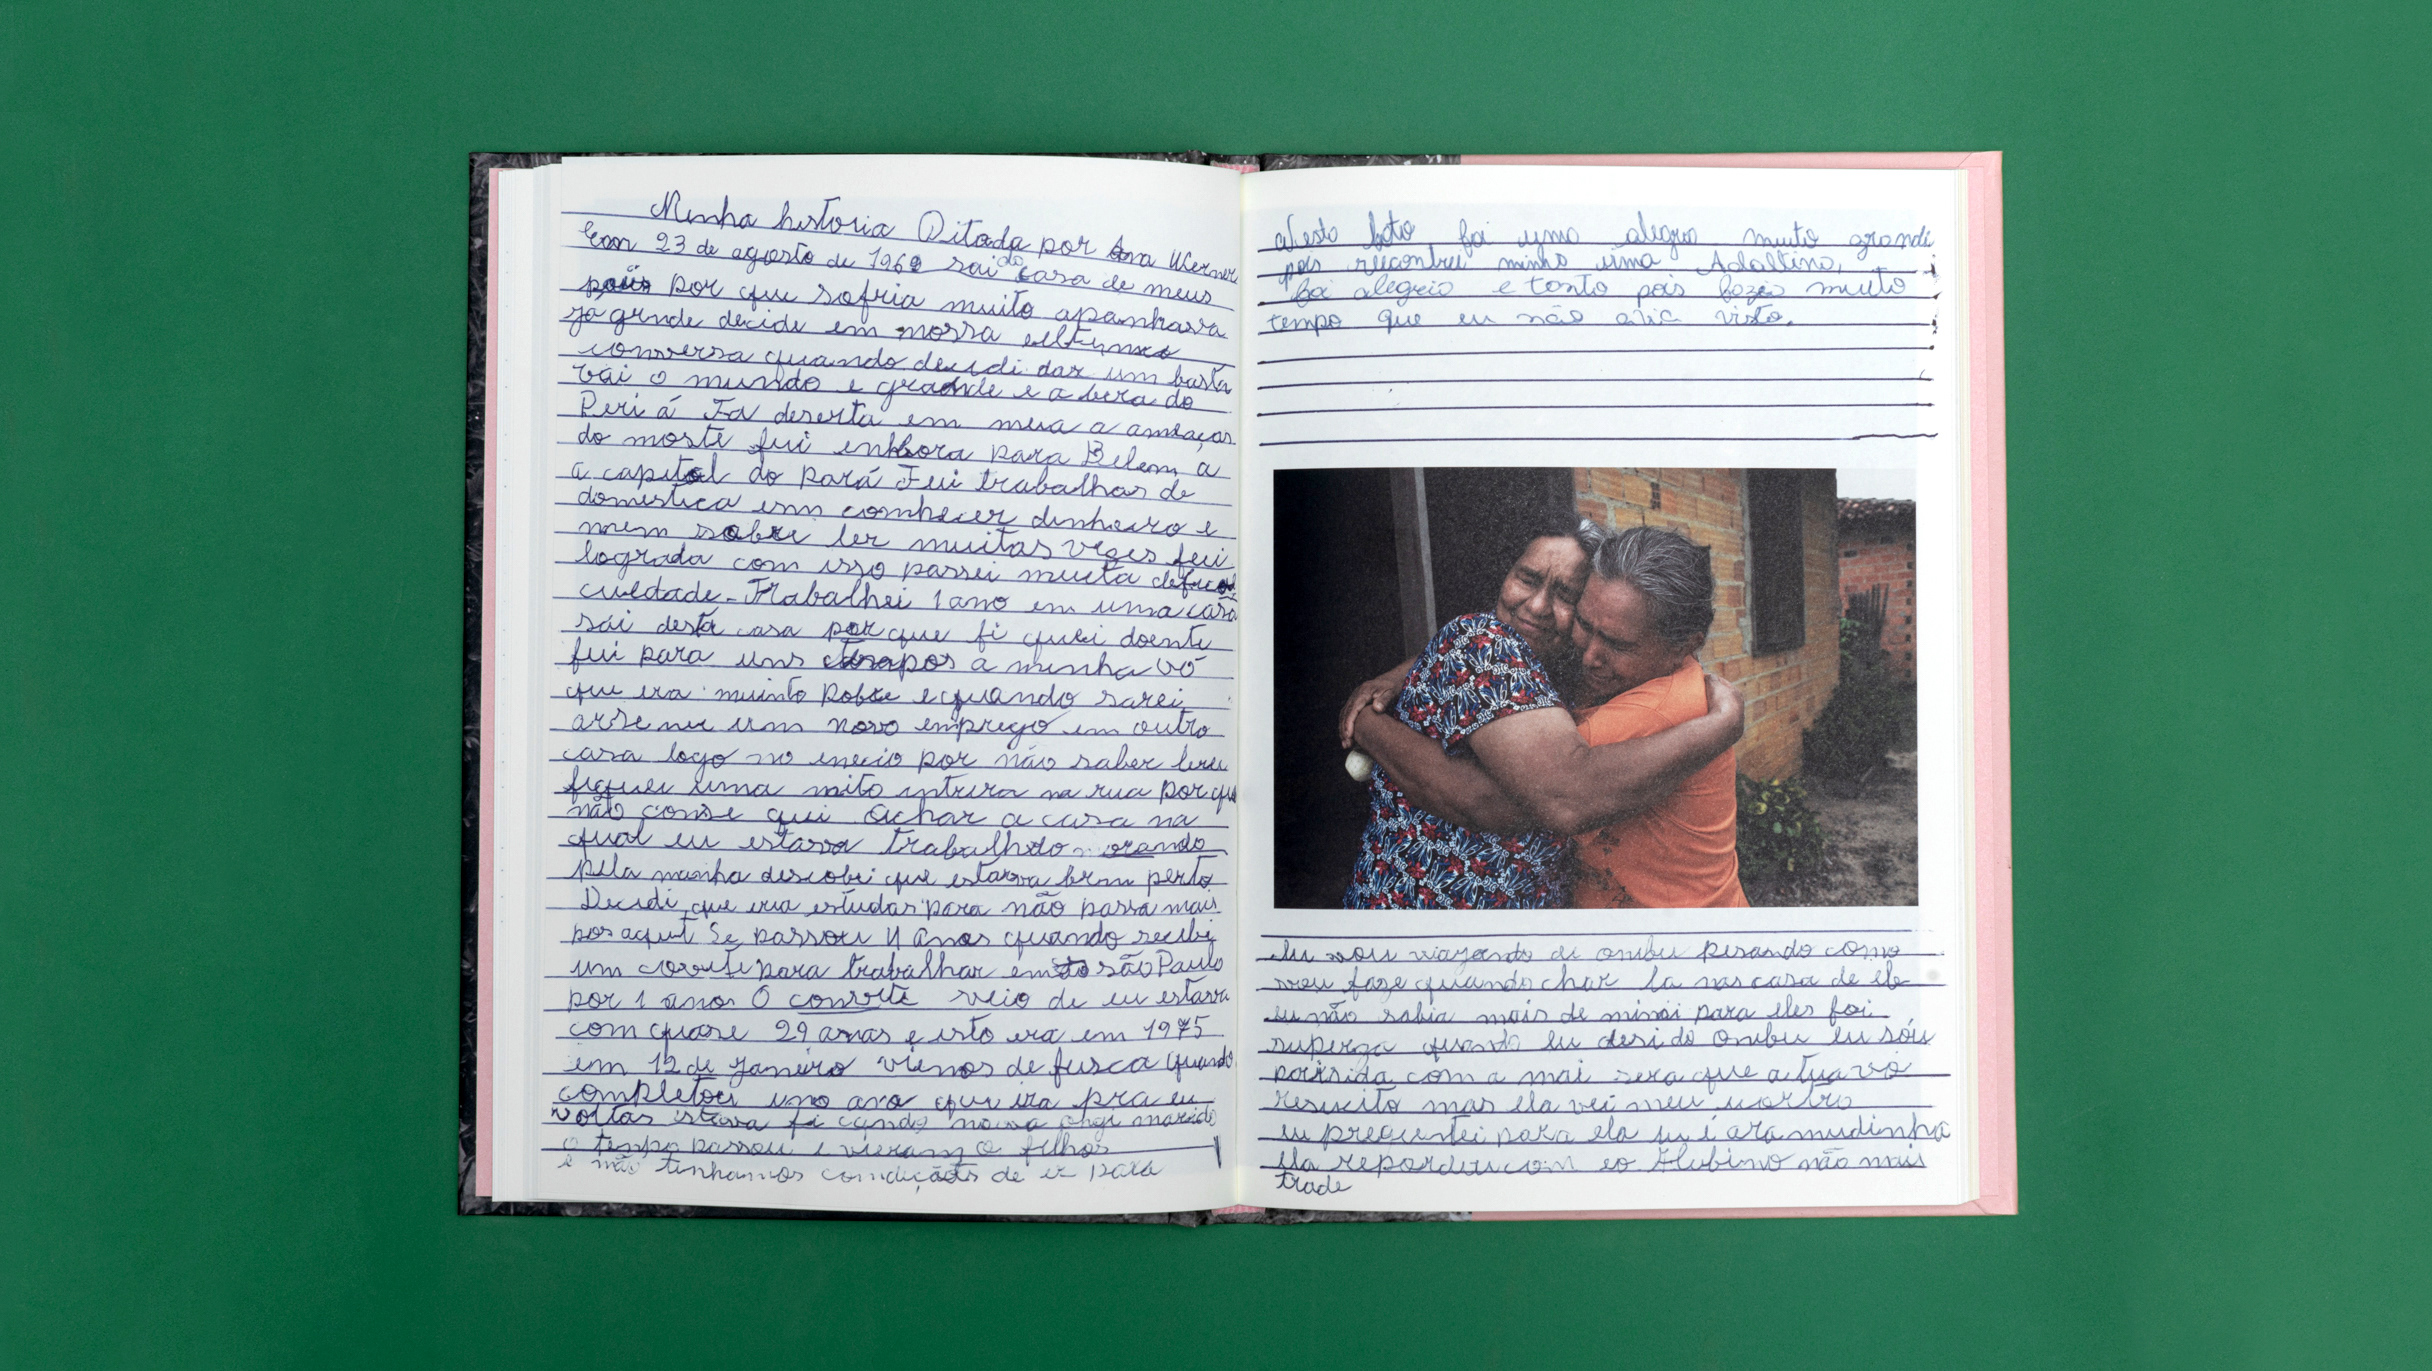 Minha historia Ditada por Ana Werner
Em 23 de agosto de 1969 sai da casa de meus
pais por que sofria muito apanhava
ja grnde decide em nossa
conversa quando decidi dar um basta
vai o mundo e grande e a bera do
Periá Ta deserta em meia a ameaças
do morte fui embora para Belem a
a capital do pará Fui trabalhar de
domestica em comhecer dinheiro e
nem sobre ler muitas vezes fui
lograda com isso passei muita
culdade - Trabalhei 1 ano em uma casa
sai desta casa por que fi quei doente
fui para uns tempos a minha vó
que era muinto Pobre e quando sarei
um novo emprego em outro
casa logo no enecio por não saber
fiquei uma na rua por que
não conse qui achar a casa na
qual eu estava trabalhdo morando
pela manha descobri que estava bem perto
Decidi que iria estudar para não passa mais
por aquilo Se passou 4 anos quando recebi
um covite para trabalhar em são Paulo
por 1 ano O convite veio de eu estava
com quase 29 anos e isto era em 1975
em 12 de janeiro viemos de fusca quando
completou uno ano que ira pra eu
voltar istava fi cando marido
o tempo passou e vieram o filhos
e não tinhamos condições de ir para
Nesta foto foi uma alegria muito grande
pois rencontrei minha irma Adaltina,
foi alegria e tanto pois fazia muito
tempo que eu não avia visto.
Eu vou viajando di onibu pesando como
vou faze quando char la nas casa de ele
eu não sabia mais de mini para eles foi
superza quando eu desi do onibu eu sói
parisida com a mai sera que a tua vó
resucito mas ela vei meu
eu precuntei para ela eu i ara mudinha
ela com eo não mais
trade